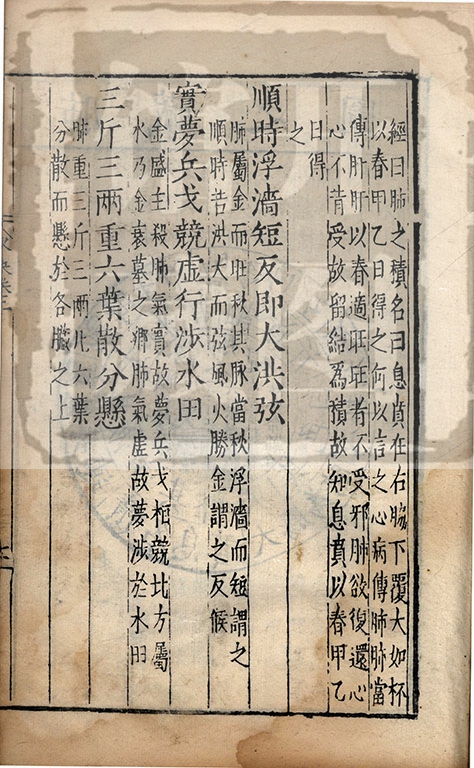 經曰肺之積名曰息賁在右脇下覆大如杯
以春甲乙日得之何以言之心病傳肺肺當
傳肝肝以春適旺旺者不受邪肺欲復還心
心不肯受故留結為積故知息賁以春甲乙
日得
之
順時浮濇短反即大洪弦
肺屬金而旺秋其脉當秋浮濇而短謂之
順時若洪大而弦風火勝金謂之反候
實夢兵戈競虛行涉水田
金盛主殺肺氣實故夢兵戈相競比方屬
水乃金衰墓之鄉肺氣虛故夢涉於水田
三斤三兩重六葉散分懸
肺重三斤三兩凡六葉
分散而懸於各臟之上